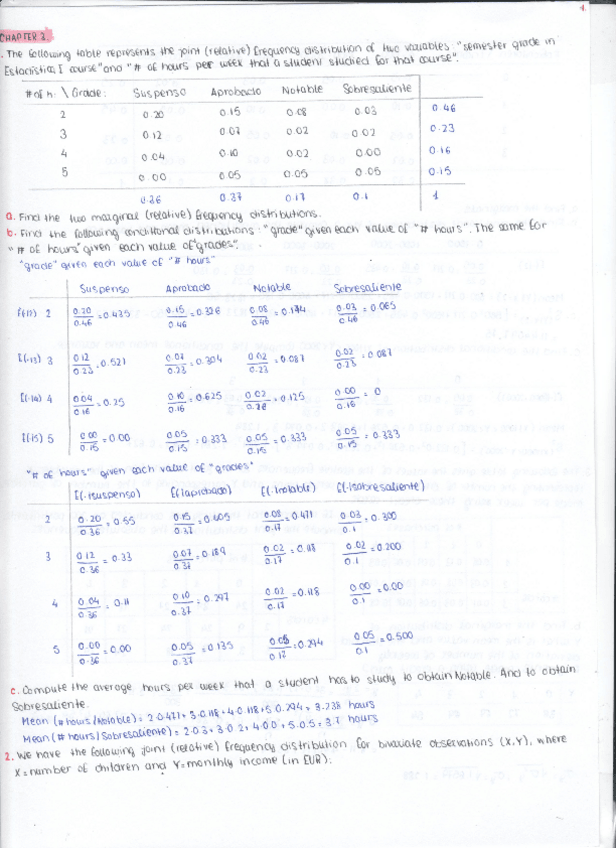 1.
CHAPTER 2.
. The following table represents the joint (relative) frequency distribution of two variables: "semester grade in
Estadistica I course" and "# of hours per week that a student studied for that course".
# of h. \ Grade: Suspenso Aprobado Notable Sobresaliente
2 0.20 0.15 0.08 0.03 0.46
3 0.12 0.07 0.02 0.02 0.23
4 0.04 0.10 0.02 0.00 0.16
5 0.00 0.05 0.05 0.05 0.15
0.36 0.37 0.17 0.1 1
a. Find the two marginal (relative) frequency distributions.
b. Find the following conditional distributions: "grade" given each value of "# hours". The same for
"# of hours" given each value of "grades".
"grade" given each value of "# hours"
Suspenso Aprobado Notable Sobresaliente
f(·|2) 2 0.20/0.46 = 0.435 0.15/0.46 = 0.326 0.08/0.46 = 0.174 0.03/0.46 = 0.065
f(·|3) 3 0.12/0.23 = 0.521 0.07/0.23 = 0.304 0.02/0.23 = 0.087 0.02/0.23 = 0.087
f(·|4) 4 0.04/0.16 = 0.25 0.10/0.16 = 0.625 0.02/0.16 = 0.125 0.00/0.16 = 0
f(·|5) 5 0.00/0.15 = 0.00 0.05/0.15 = 0.333 0.05/0.15 = 0.333 0.05/0.15 = 0.333
"# of hours" given each value of "grades"
f(·|suspenso) f(·|aprobado) f(·|notable) f(·|sobresaliente)
2 0.20/0.36 = 0.55 0.15/0.37 = 0.405 0.08/0.17 = 0.471 0.03/0.1 = 0.300
3 0.12/0.36 = 0.33 0.07/0.37 = 0.189 0.02/0.17 = 0.118 0.02/0.1 = 0.200
4 0.04/0.36 = 0.11 0.10/0.37 = 0.297 0.02/0.17 = 0.118 0.00/0.1 = 0.00
5 0.00/0.36 = 0.00 0.05/0.37 = 0.135 0.05/0.17 = 0.294 0.05/0.1 = 0.500
c. Compute the average hours per week that a student has to study to obtain Notable. And to obtain
Sobresaliente.
Mean (# hours/Notable) = 2·0.471 + 3·0.118 + 4·0.118 + 5·0.294 = 3.238 hours
Mean (# hours/Sobresaliente) = 2·0.3 + 3·0.2 + 4·0.0 + 5·0.5 = 3.7 hours
2. We have the following joint (relative) frequency distribution for bivariate observations (X,Y), where
X = number of children and Y = monthly income (in EUR):